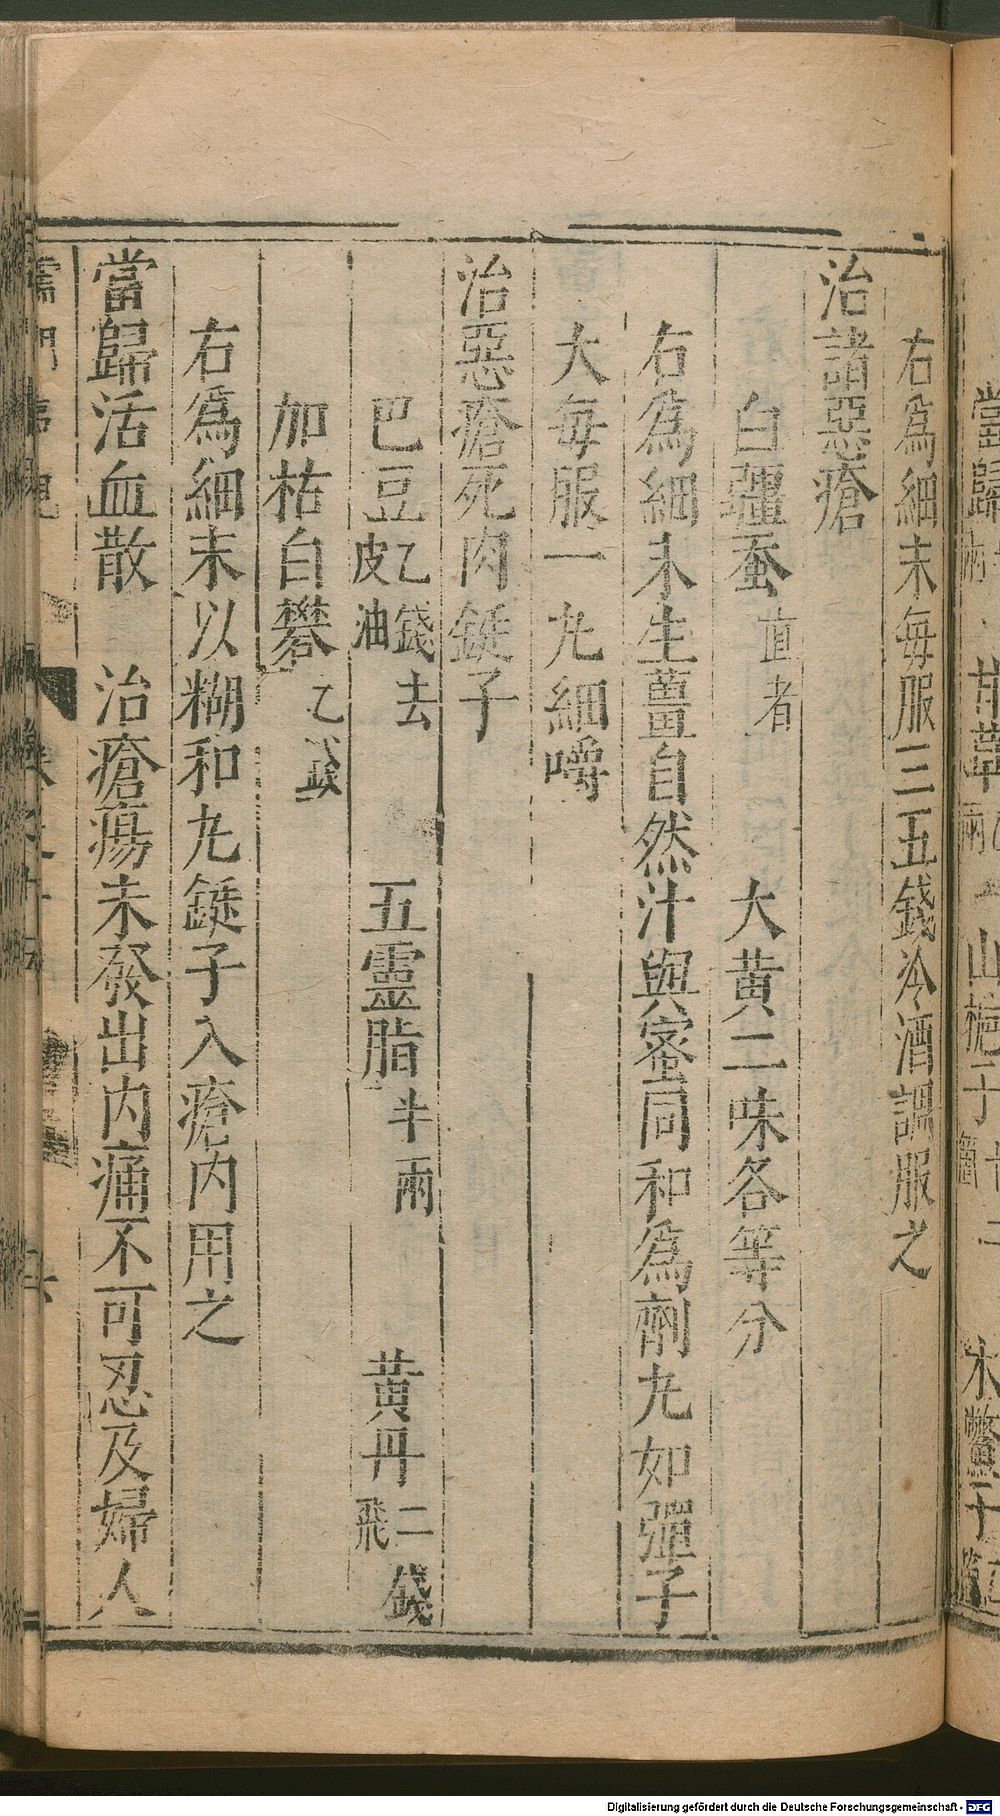 右爲細末每服三五錢冷酒調服之
治諸惡瘡
白疆蚕直者 大黃二味各等分
右爲細末生薑自然汁與蜜同和爲劑丸如彈子
大每服一丸細嚼
治惡瘡死肉鋌子
巴豆乙錢去皮油 五靈脂半兩 黃丹二錢飛
加枯白礬乙錢
右爲細末以糊和丸鋌子入瘡內用之
當歸活血散 治瘡瘍未發出內痛不可忍及婦人
Digitalisierung gefördert durch die Deutsche Forschungsgemeinschaft - DFG